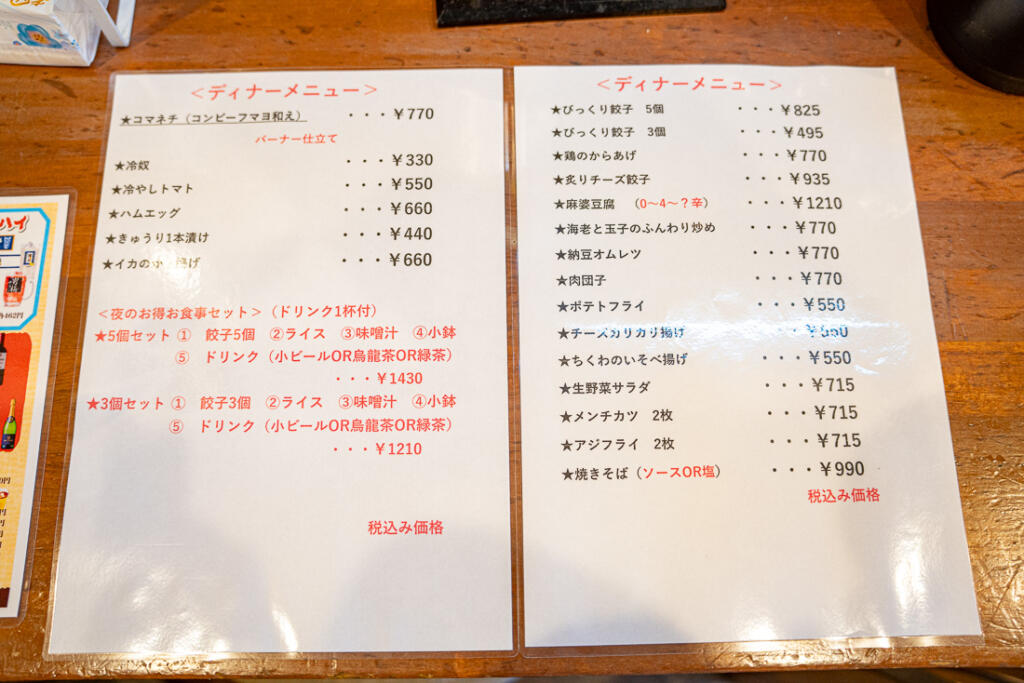 ＜ディナーメニュー＞
★コマネチ（コンビーフマヨ和え） ・・・￥770
バーナー仕立て
★冷奴 ・・・￥330
★冷やしトマト ・・・￥550
★ハムエッグ ・・・￥660
★きゅうり1本漬け ・・・￥440
★イカの 揚げ ・・・￥660
＜夜のお得お食事セット＞（ドリンク1杯付）
★5個セット ① 餃子5個 ②ライス ③味噌汁 ④小鉢
⑤ ドリンク（小ビールOR烏龍茶OR緑茶）
・・・￥1430
★3個セット ① 餃子3個 ②ライス ③味噌汁 ④小鉢
⑤ ドリンク（小ビールOR烏龍茶OR緑茶）
・・・￥1210
税込み価格
＜ディナーメニュー＞
★びっくり餃子 5個 ・・・￥825
★びっくり餃子 3個 ・・・￥495
★鶏のからあげ ・・・￥770
★炙りチーズ餃子 ・・・￥935
★麻婆豆腐 （0～4～？辛） ・・・￥1210
★海老と玉子のふんわり炒め ・・・￥770
★納豆オムレツ ・・・￥770
★肉団子 ・・・￥770
★ポテトフライ ・・・￥550
★チーズカリカリ揚げ ・・・￥550
★ちくわのいそべ揚げ ・・・￥550
★生野菜サラダ ・・・￥715
★メンチカツ 2枚 ・・・￥715
★アジフライ 2枚 ・・・￥715
★焼きそば（ソースOR塩） ・・・￥990
税込み価格
ハイ
462円